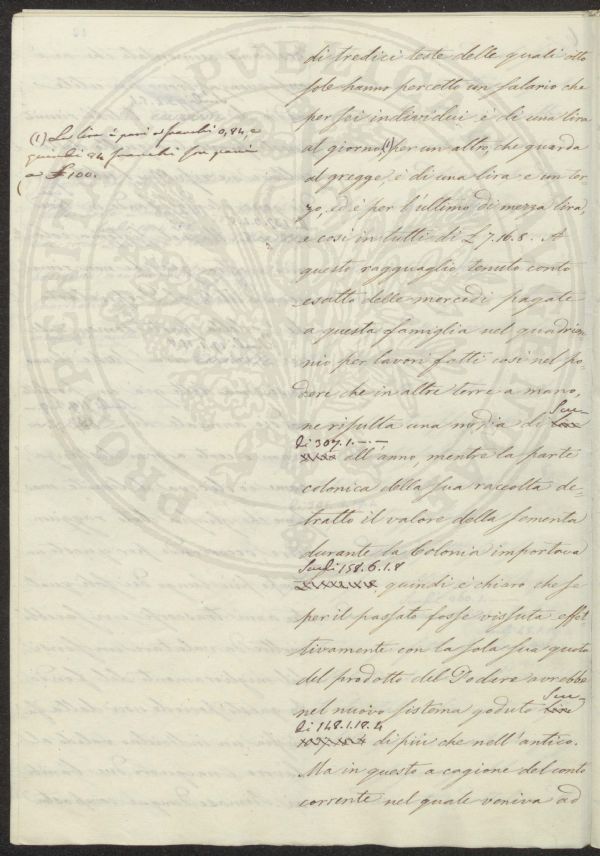 di tredici teste delle quali otto
sole hanno percetto un salario che
per sei individui è di una lira
al giorno(1) per un altro, che guarda
al gregge, è di una lira e un ter-
zo, ed è per l'ultimo di mezza lira,
e così in tutti di £ 7.16.8. A
questo ragguaglio tenuto conto
esatto delle mercedi pagate
a questa famiglia nel quadrien-
nio per lavori fatti così nel po-
dere che in altre terre a mano,
ne risulta una media di Scu-
di 307.1.-.- all'anno, mentre la parte
colonica della sua raccolta de-
tratto il valore della sementa
durante la Colonia importava
Scudi 158.6.1.8 quindi è chiaro che se
per il passato fosse vissuta effet-
tivamente con la sola sua quota
del prodotto del Podere avrebbe
nel nuovo sistema goduto Scu-
di 148.1.18.4 di più che nell'antico.
Ma in questo a cagione del conto
corrente nel quale veniva ad
(1) La lira è pari a franchi 0,84, e
quindi 84 franchi son pari
a £ 100.
PVBBLICA
PROSPERITÀ